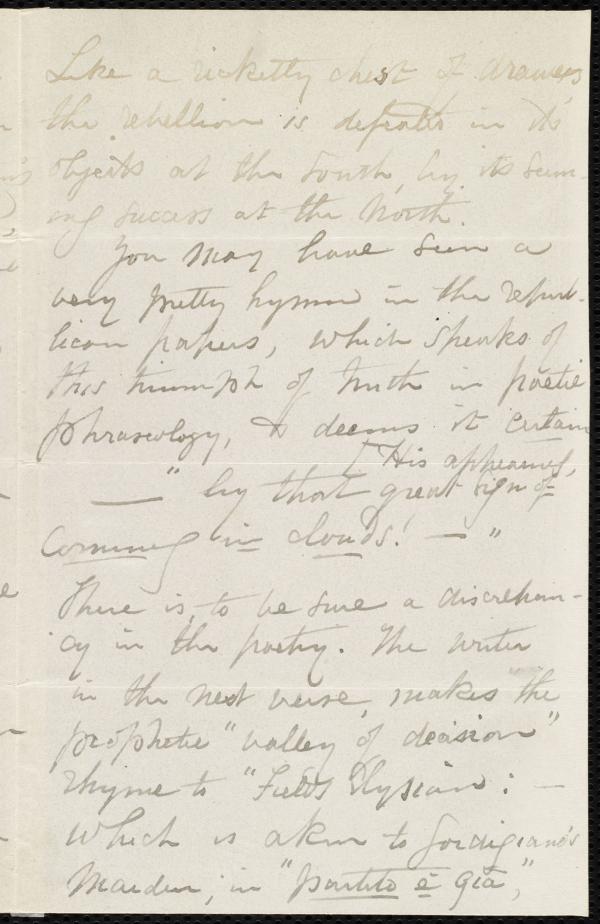 Like a ricketty chest of drawers
the rebellion is defeated in its
objects at the South, by its seem-
ing success at the North.
You may have seen a
very pretty hymn in the repub-
lican papers, which speaks of
this triumph of truth in poetic
phraseology, & deems it certain
[His appearing,
— " by that great sign of
coming in clouds! — "
There is, to be sure a discrepan-
cy in the poetry. The writer
in the next verse, makes the
prophetic "valley of decision"
rhyme to "Fields Elysian: —
Which is akin to Gordigiano's
Maiden, in "partito è già,"